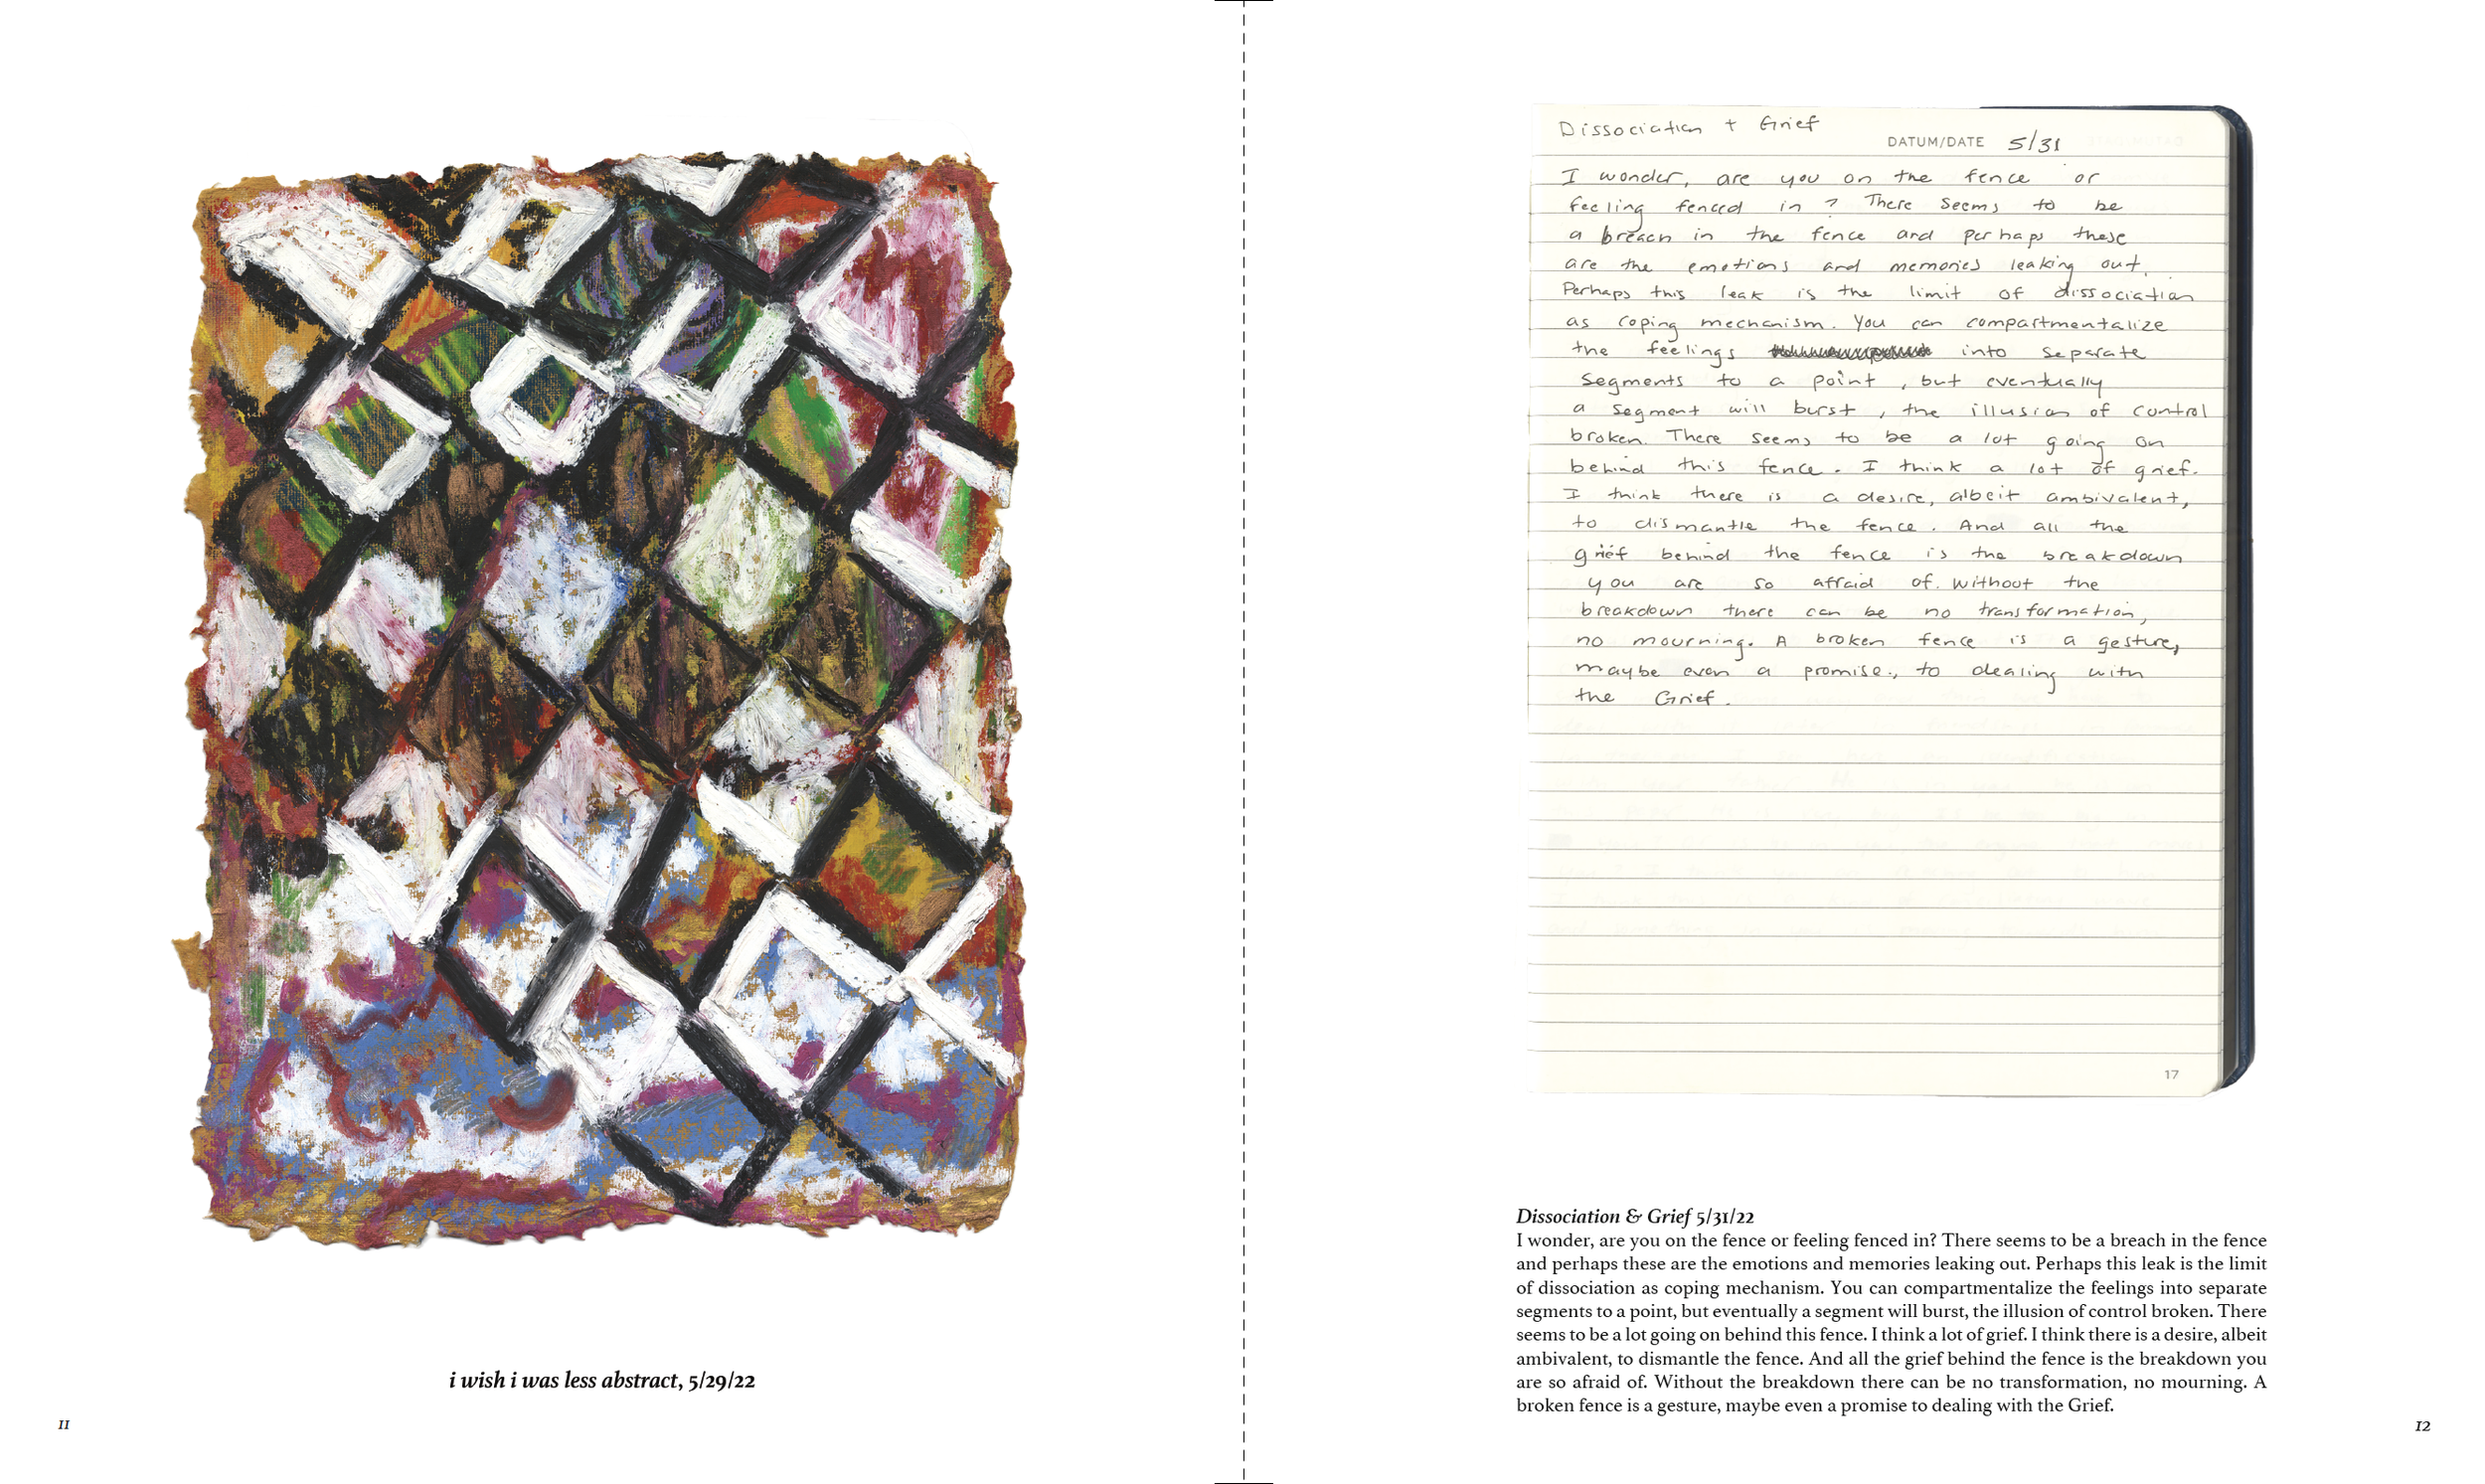 i wish i was less abstract, 5/29/22
11
Dissociation + Grief
DATUM/DATE 5/31
I wonder, are you on the fence or
feeling fenced in? There seems to be
a breach in the fence and perhaps these
are the emotions and memories leaking out.
Perhaps this leak is the limit of dissociation
as coping mechanism. You can compartmentalize
the feelings into separate
segments to a point, but eventually
a segment will burst, the illusion of control
broken. There seems to be a lot going on
behind this fence. I think a lot of grief.
I think there is a desire, albeit ambivalent,
to dismantle the fence. And all the
grief behind the fence is the breakdown
you are so afraid of. Without the
breakdown there can be no transformation,
no mourning. A broken fence is a gesture,
maybe even a promise., to dealing with
the Grief.
17
Dissociation & Grief 5/31/22
I wonder, are you on the fence or feeling fenced in? There seems to be a breach in the fence
and perhaps these are the emotions and memories leaking out. Perhaps this leak is the limit
of dissociation as coping mechanism. You can compartmentalize the feelings into separate
segments to a point, but eventually a segment will burst, the illusion of control broken. There
seems to be a lot going on behind this fence. I think a lot of grief. I think there is a desire, albeit
ambivalent, to dismantle the fence. And all the grief behind the fence is the breakdown you
are so afraid of. Without the breakdown there can be no transformation, no mourning. A
broken fence is a gesture, maybe even a promise to dealing with the Grief.
12